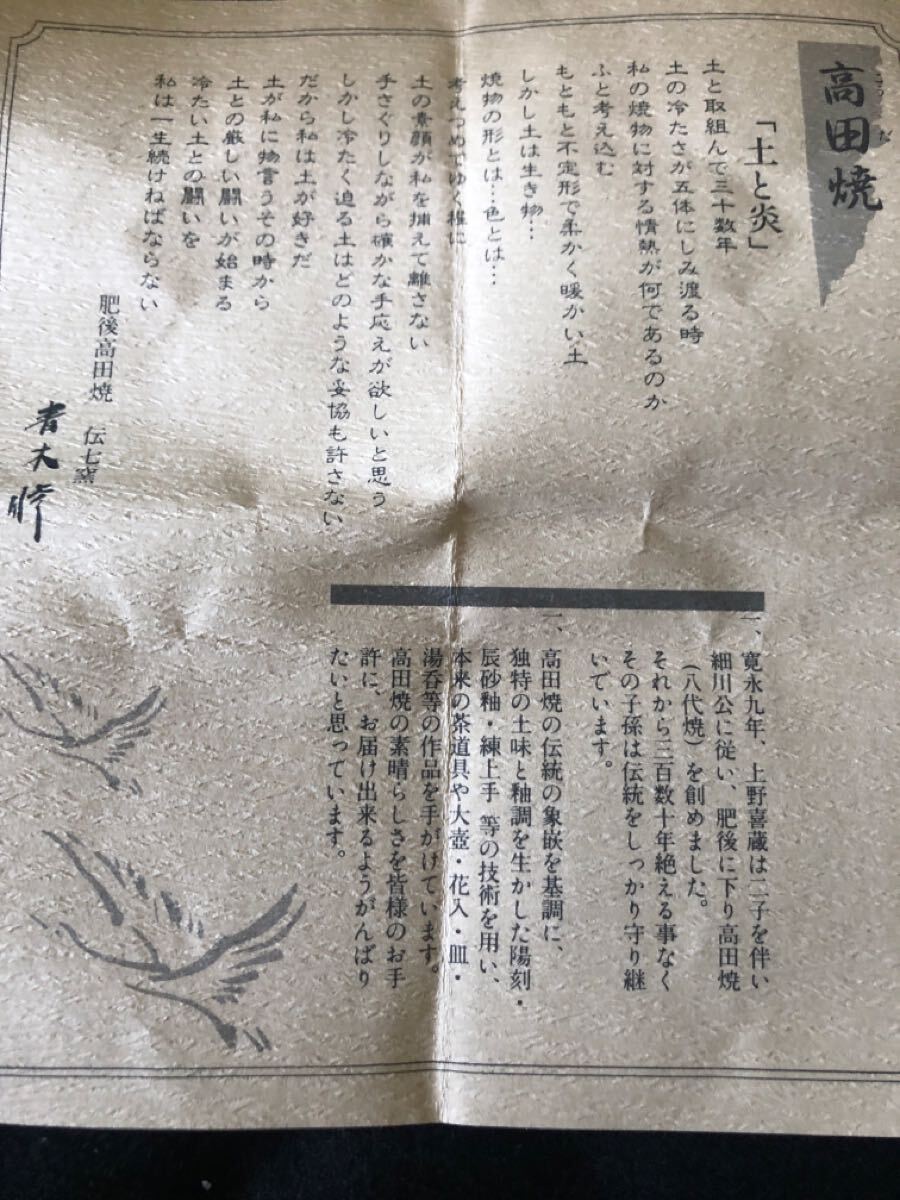 高田焼
こうだ
「土と炎」
土と取組んで三十数年
土の冷たさが五体にしみ渡る時
私の焼物に対する情熱が何であるのか
ふと考え込む
もともと不定形で柔かく暖かい土
しかし土は生き物…
焼物の形とは…色とは…
考えつめてゆく程に
土の素顔が私を捕えて離さない
手さぐりしながら確かな手応えが欲しいと思う
しかし冷たく迫る土はどのような妥協も許さない
だから私は土が好きだ
土が私に物言うその時から
土との厳しい闘いが始まる
冷たい土との闘いを
私は一生続けねばならない
肥後高田焼 伝七窯
一、寛永九年、上野喜蔵は二子を伴い
細川公に従い、肥後に下り高田焼
(八代焼)を創めました。
それから三百数十年絶える事なく
その子孫は伝統をしっかり守り継
いでいます。
一、高田焼の伝統の象嵌を基調に、
独特の土味と釉調を生かした陽刻・
辰砂釉・練上手 等の技術を用い、
本来の茶道具や大壺・花入・皿・
湯呑等の作品を手がけています。
高田焼の素晴らしさを皆様のお手
許に、お届け出来るようがんばり
たいと思っています。